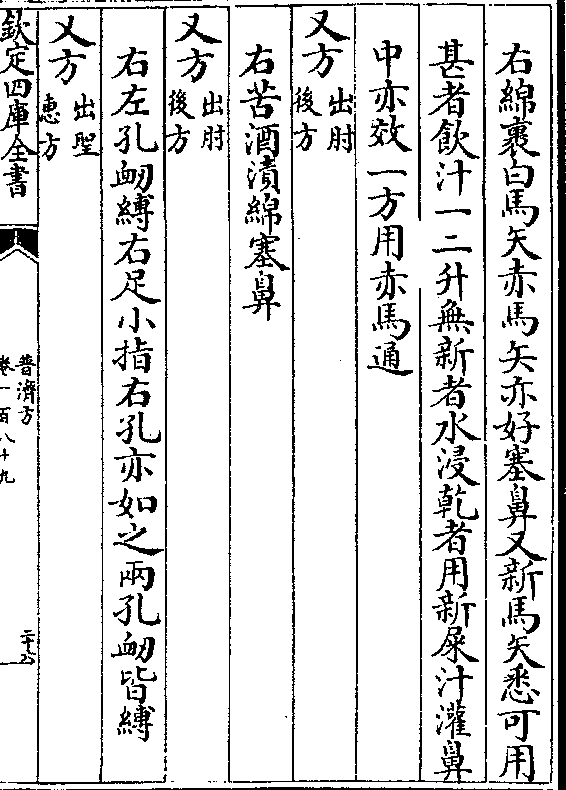 右綿裹白馬矢赤馬矢亦好塞鼻又新馬矢悉可用
甚者飲汁一二升無新者水浸乾者用新屎汁灌鼻
中亦效一方用赤馬通
又方出肘後方
右苦酒漬綿塞鼻
又方出肘後方
右左孔衂縛右足小指右孔亦如之兩孔衂皆縛
又方出聖惠方
欽定四庫全書
普濟方
卷一百八十九